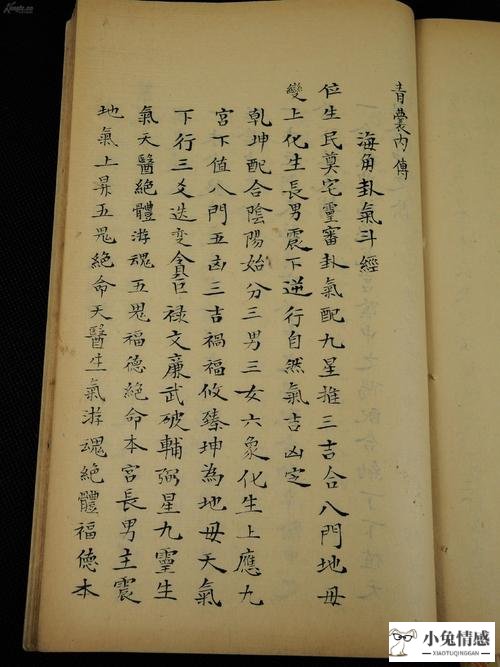 青囊內傳
海角卦氣斗經
位生民奠宅靈審卦氣配九星推三吉合八門地母
變上化生長男震下逆行自然氣吉凶定
乾坤配合陰陽始分三男三女六象化生上應九
宮下值八門五凶三吉禍福攸臻坤為地母天氣
下行三爻迭變貪巨祿文廉武破輔弼星九靈生
氣天醫絕體游魂五鬼福德絕命本宮長男主震
地氣上昇五鬼絕命天醫生氣游魂絕體福德本
小兔情感
XIAOTUQINGGAN